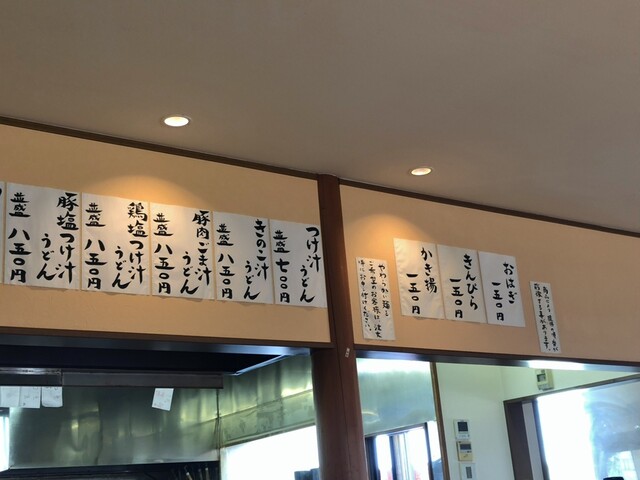 つけ汁うどん
並盛 七〇〇円
きのこ汁うどん
並盛 八五〇円
豚肉ごま汁うどん
並盛 八五〇円
鶏塩つけ汁うどん
並盛 八五〇円
豚塩つけ汁うどん
並盛 八五〇円
おはぎ
一五〇円
きんぴら
一五〇円
かき揚
一五〇円
やわらかい麺を